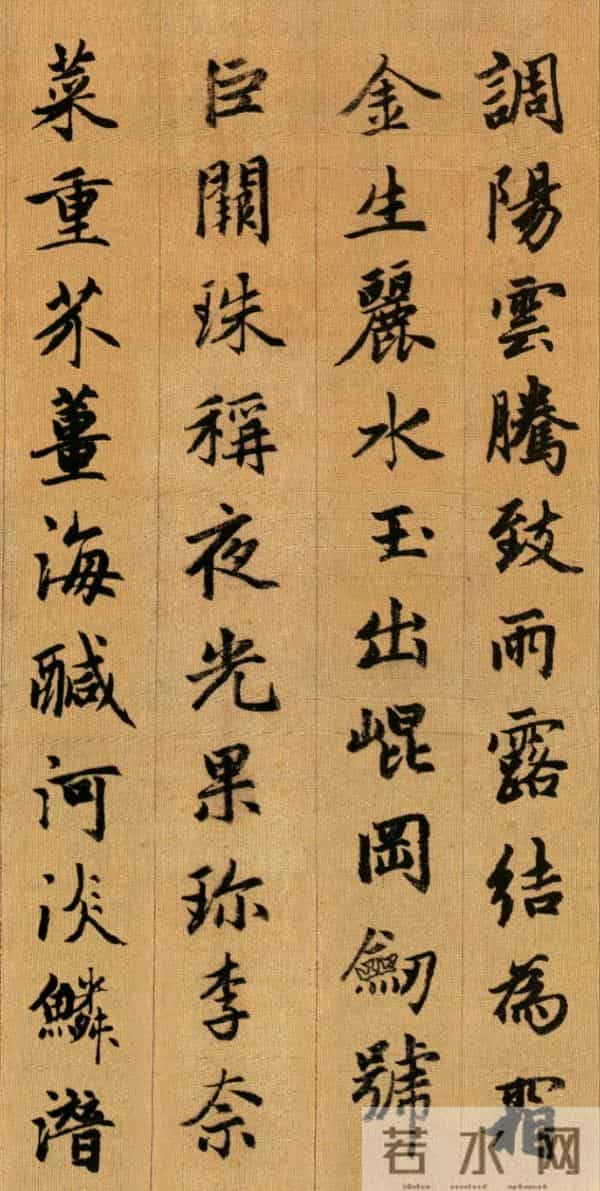 調陽雲騰致雨露結為霜
金生麗水玉出崐岡劒號
巨闕珠稱夜光果珎李奈
菜重芥薑海醎河淡鱗潛
若水网